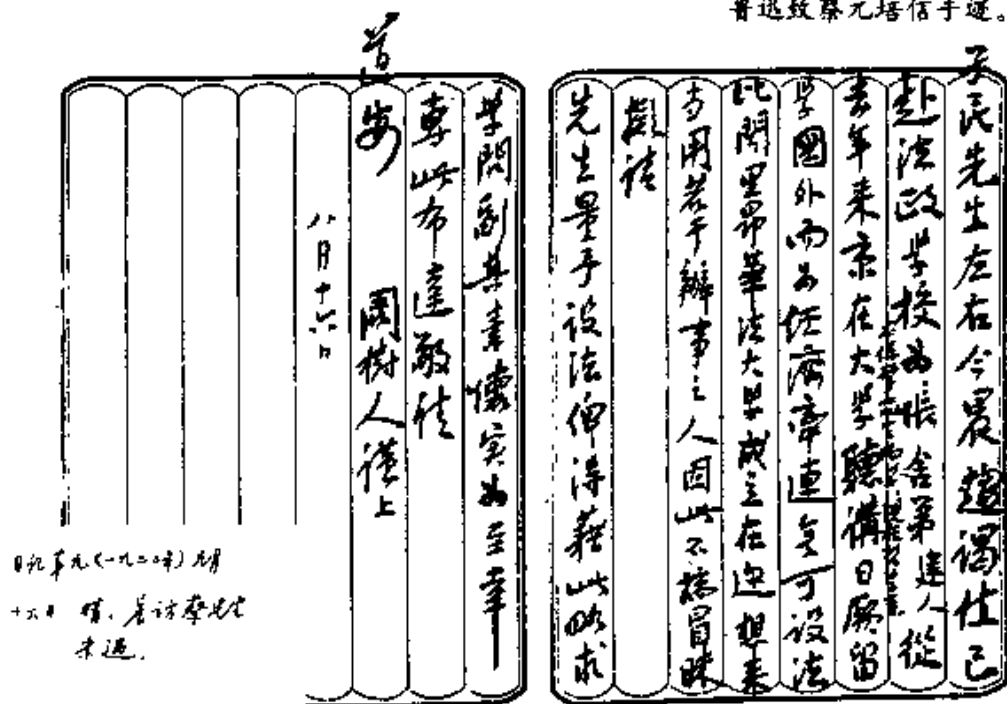 鲁迅致蔡元培信手迹。
孑民先生左右今晨趋谒值已
赴法政学校为怅舍弟建人从
去年来京在大学聽講日願留
学國外而为经济牵連无可设法
比聞里昂華法大学成立在迩想来
当用若干辦事之人因此不揣冒昧
擬请
先生量予设法俾得藉此略求
学問副其素懷実为至幸
專此布達敬請
道
安 周樹人謹上
八月十六日
日記第九(一九二〇年)八月
十六日 晴，晨访蔡先生
未遇.